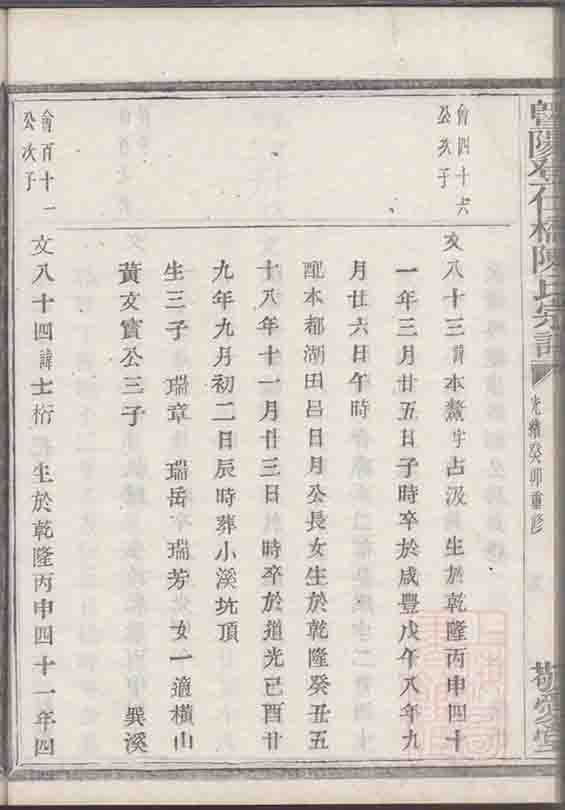 暨陽孝仁橋陳氏宗譜
光緒癸卯重修
敬愛堂
會四十六
公次子
文八十三諱本鰲字占汲 生於乾隆丙申四十
一年三月廿五日子時卒於咸豐戊午八年九
月廿六日午時
配本都湖田呂日月公長女生於乾隆癸丑五
十八年十一月廿三日 時卒於道光己酉廿
九年九月初二日辰時葬小溪坑頂
生三子 瑞章 瑞岳 瑞芳 女一適橫山
黃文賓公三子 巽溪
會百十一
公次子
文八十四諱士桁 生於乾隆丙申四十一年四